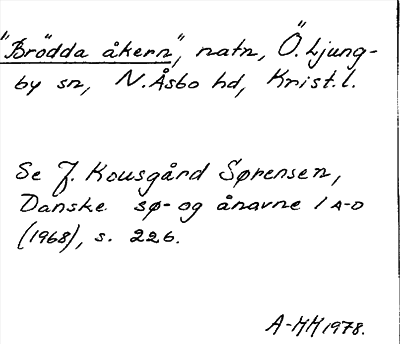 "Brödda åkern", natn, Ö. Ljung-
by sn, N. Åsbo hd, Krist. l.
Se J. Kousgård Sørensen,
Danske sø- og ånavne 1 A-D
(1968), s. 226.
A-HH 1978.